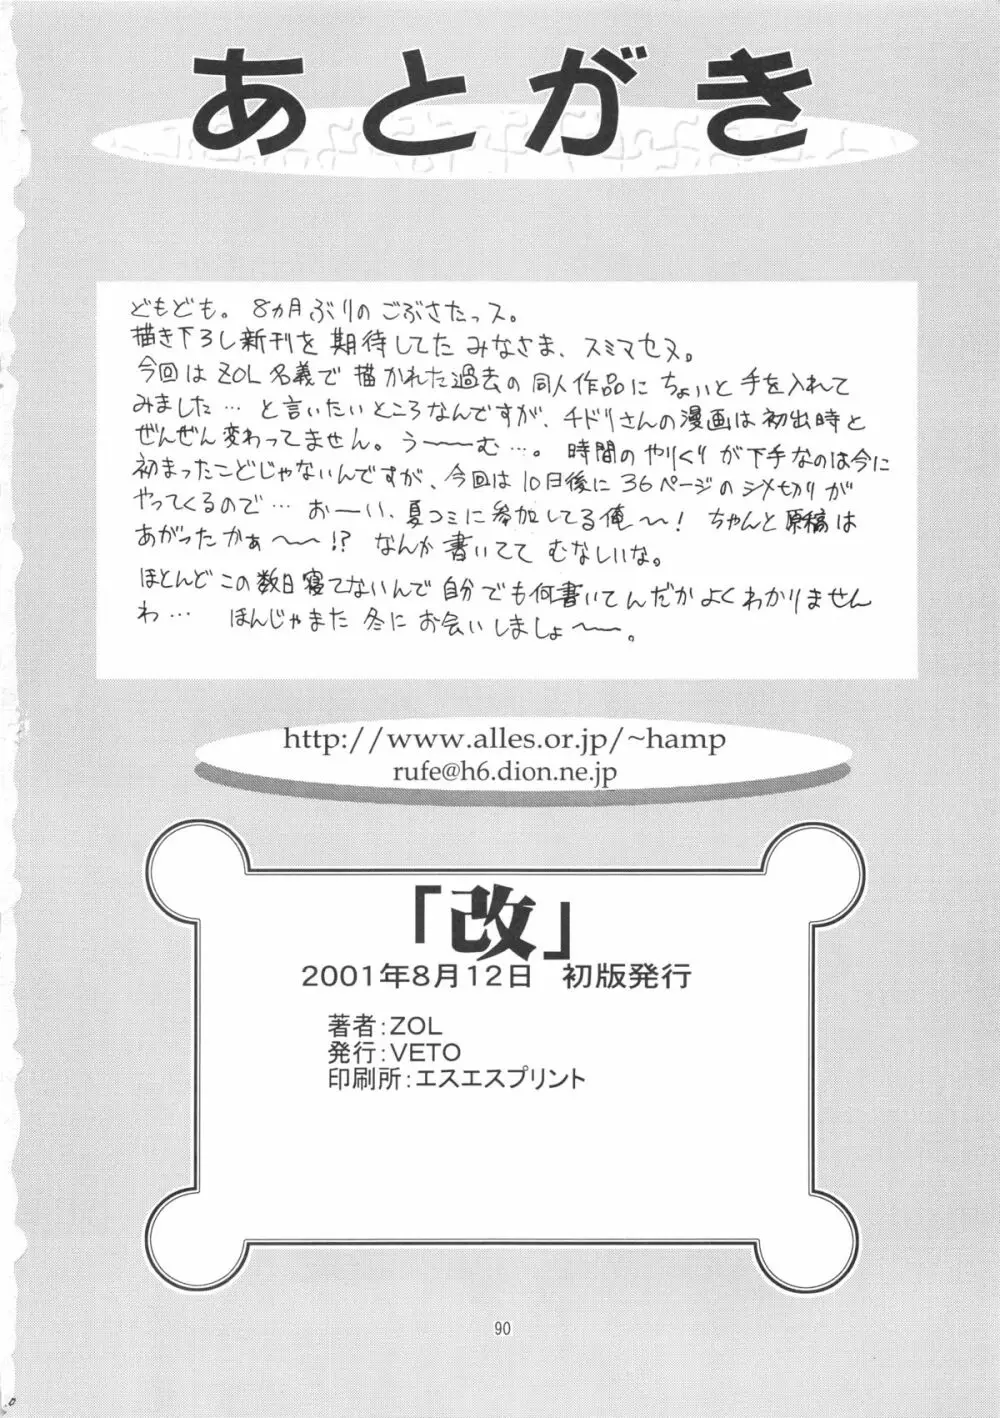 あとがき
どもども。8ヵ月ぶりのごぶさたっス。
描き下ろし新刊を期待してたみなさま、スミマセヌ。
今回はZOL名義で描かれた過去の同人作品にちょいと手を入れて
みました…と言いたいところなんですが、チドリさんの漫画は初出時と
ぜんぜん変わってません。う〜〜む…。時間のやりくりが下手なのは今に
初まったことじゃないんですが、今回は10日後に36ページのシメ切りが
やってくるので…おーい、夏コミに参加してる俺〜！ちゃんと原稿は
あがったかぁ〜〜!? なんか書いてて むなしいな。
ほとんどこの数日寝てないんで自分でも何書いてんだかよくわかりません
わ… ほんじゃまた冬にお会いしましょ〜〜。
http://www.alles.or.jp/~hamp
rufe@h6.dion.ne.jp
「改」
2001年8月12日 初版発行
著者：ZOL
発行：VETO
印刷所：エスエスプリント
90